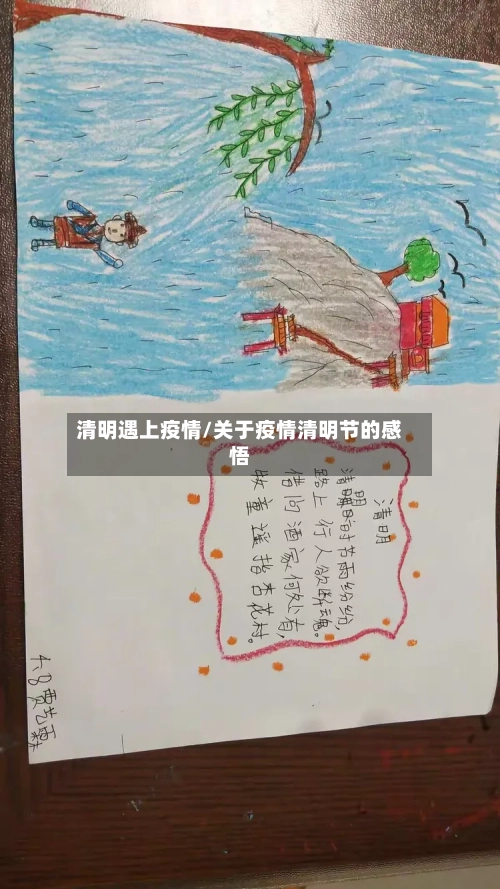 清明遇上疫情/关于疫情清明节的感
悟
清明
清明时节雨纷纷,
路上行人欲断魂。
借问酒家何处有,
牧童遥指杏花村。